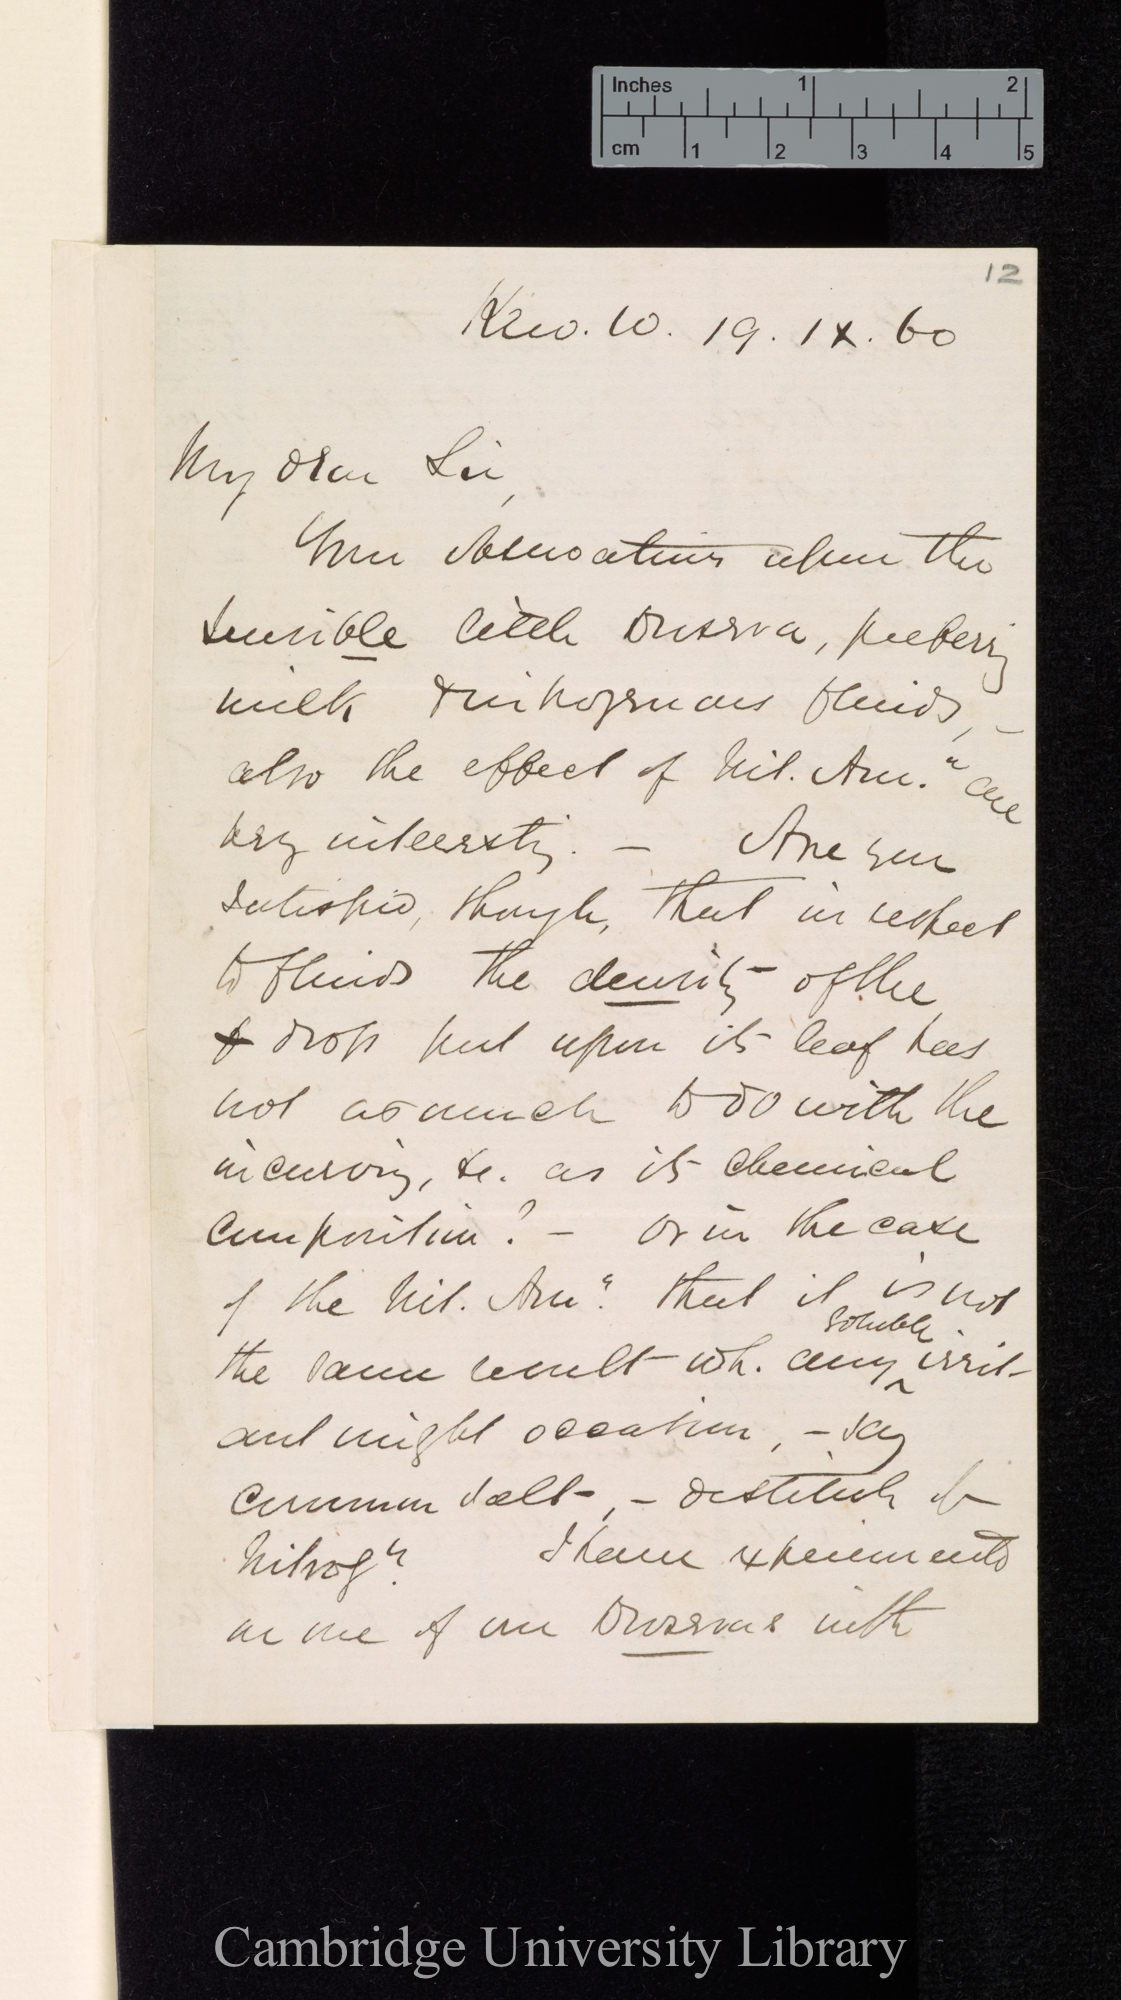 Inches 1 2
cm 1 2 3 4 5
12
Kew. W. 19. IX. 60
My dear Sir,
Your observations upon the
sensible little Drosera, prefering
milk & nitrogenous fluids, –
also the effect of Nit. Amn. are
very interestig. – Are you
satisfied, though, that in respect
to fluids the density of the
drop put upon its leaf has
not as much to do with the
incurving, &c. as its chemical
composition? – or in the case
of the Nit. Amn. that it is not
soluble
the same result wh. any ^ irrit-
ant might occasion, – say
common salt, – destitute of
Nitrogn? I have experimented
on one of our Droseras with
Cambridge University Library